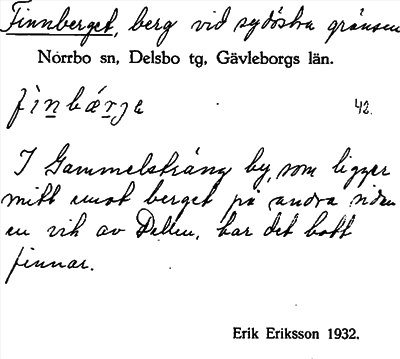 Finnberget, berg vid sydöstra gränsen
Norrbo sn, Delsbo tg, Gävleborgs län.
fìnbárje 42.
I Gammelsträng by, som ligger
mitt emot berget på andra sidan
en vik av Dellen, har det bott
finnar.
Erik Eriksson 1932.